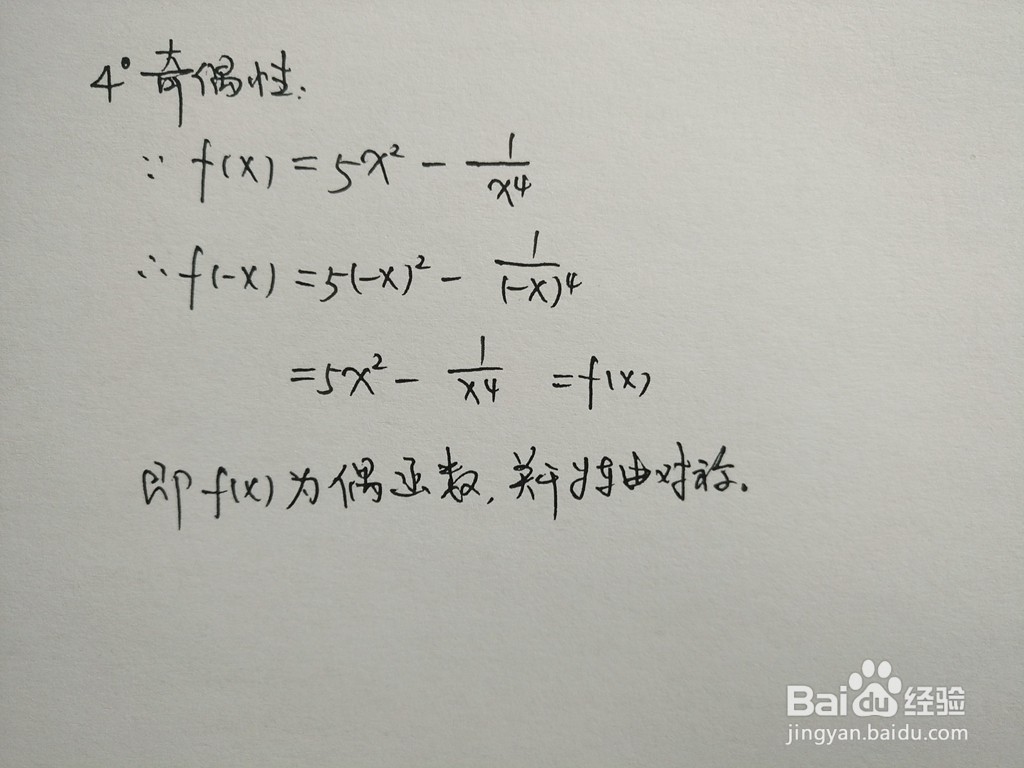 4° 奇偶性:
∵ f(x) = 5x² - 1/x⁴
∴ f(-x) = 5(-x)² - 1/(-x)⁴
= 5x² - 1/x⁴ = f(x)
即 f(x) 为偶函数, 关于y轴对称.
Bai du 经验
jingyan.baidu.com